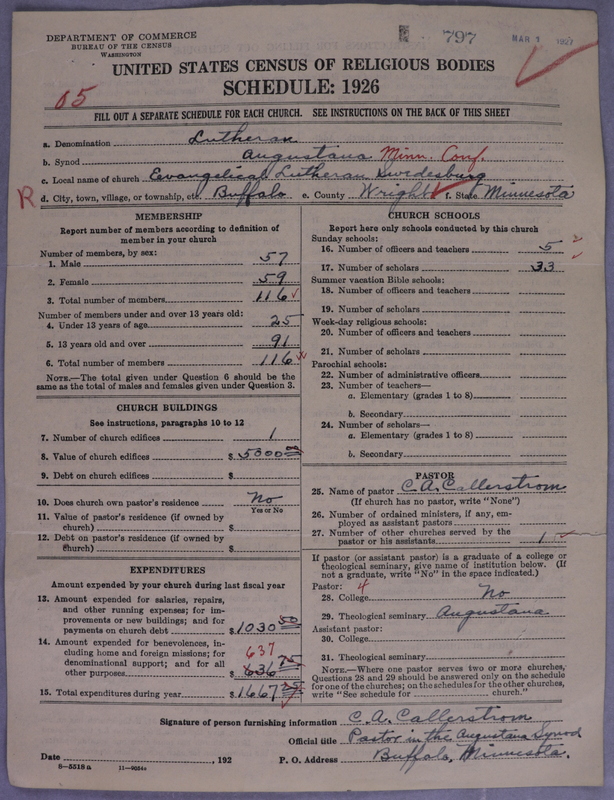 DEPARTMENT OF COMMERCE
BUREAU OF THE CENSUS
WASHINGTON
797
MAR 1 1927
UNITED STATES CENSUS OF RELIGIOUS BODIES
SCHEDULE: 1926
05
FILL OUT A SEPARATE SCHEDULE FOR EACH CHURCH. SEE INSTRUCTIONS ON THE BACK OF THIS SHEET
a. Denomination Lutheran
b. Synod Augustana Minn. Conf.
c. Local name of church Evangelical Lutheran Swedesburg
R d. City, town, village, or township, etc. Buffalo e. County Wright f. State Minnesota
MEMBERSHIP
Report number of members according to definition of
member in your church
Number of members, by sex:
1. Male 57
2. Female 59
3. Total number of members 116
Number of members under and over 13 years old:
4. Under 13 years of age 25
5. 13 years old and over 91
6. Total number of members 116
NOTE.—The total given under Question 6 should be the
same as the total of males and females given under Question 3.
CHURCH BUILDINGS
See instructions, paragraphs 10 to 12
7. Number of church edifices 1
8. Value of church edifices $ 5000 00
9. Debt on church edifices $
10. Does church own pastor's residence No
Yes or No
11. Value of pastor's residence (if owned by
church) $
12. Debt on pastor's residence (if owned by
church) $
EXPENDITURES
Amount expended by your church during last fiscal year
13. Amount expended for salaries, repairs,
and other running expenses; for im-
provements or new buildings; and for
payments on church debt $ 1030 50
14. Amount expended for benevolences, in-
cluding home and foreign missions; for
denominational support; and for all
637
other purposes 636 75
15. Total expenditures during year $ 1667 25
CHURCH SCHOOLS
Report here only schools conducted by this church
Sunday schools:
16. Number of officers and teachers 5
17. Number of scholars 33
Summer vacation Bible schools:
18. Number of officers and teachers
19. Number of scholars
Week-day religious schools:
20. Number of officers and teachers
21. Number of scholars
Parochial schools:
22. Number of administrative officers
23. Number of teachers—
a. Elementary (grades 1 to 8)
b. Secondary
24. Number of scholars—
a. Elementary (grades 1 to 8)
b. Secondary
PASTOR
25. Name of pastor C. A. Callerstrom
(If church has no pastor, write "None")
26. Number of ordained ministers, if any, em-
ployed as assistant pastors
27. Number of other churches served by the
pastor or his assistants 1
If pastor (or assistant pastor) is a graduate of a college or
theological seminary, give name of institution below. (If
not a graduate, write "No" in the space indicated.)
Pastor: 4
28. College No
29. Theological seminary Augustana
Assistant pastor:
30. College
31. Theological seminary
NOTE.—Where one pastor serves two or more churches,
Questions 28 and 29 should be answered only on the schedule
for one of the churches; on the schedules for the other churches,
write "See schedule for church."
Signature of person furnishing information C. A. Callerstrom
Official title Pastor in the Augustana Synod
Date , 192 P. O. Address Buffalo, Minnesota.
8—5519 a 11—9054a